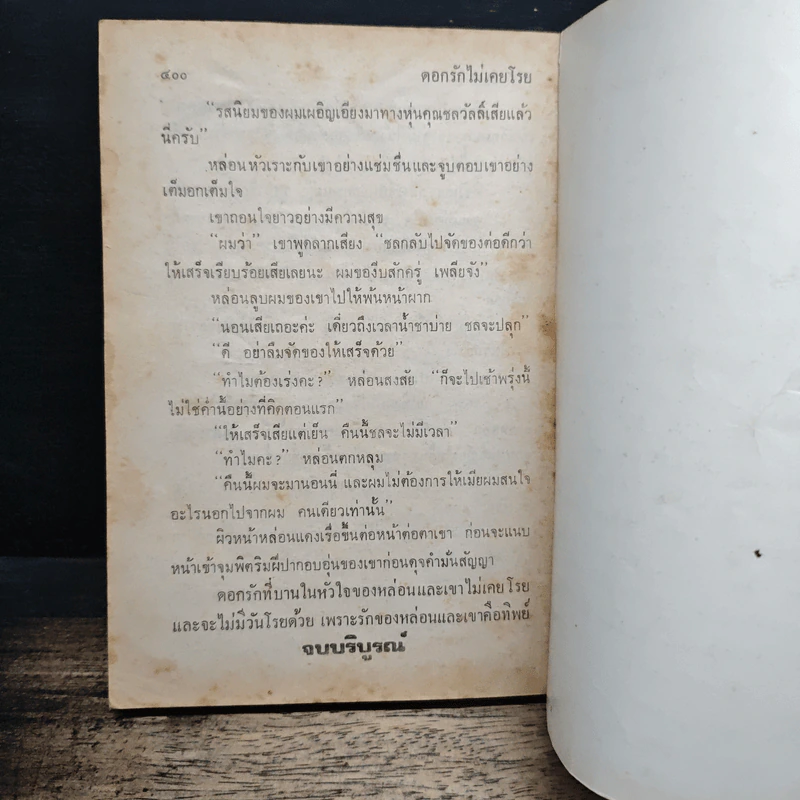 ๔๐๐ ดอกรักไม่เคยโรย
“รสนิยมของผมเผอิญเอียงมาทางหุ่นคุณชลวัลลิ์เสียแล้ว
นี่ครับ”
หล่อนหัวเราะกับเขาอย่างแช่มชื่นและจูบตอบเขาอย่าง
เต็มอกเต็มใจ
เขาถอนใจยาวอย่างมีความสุข
“ผมว่า” เขาพูดลากเสียง “ชลกลับไปจัดของต่อดีกว่า
ให้เสร็จเรียบร้อยเสียเลยนะ ผมของีบสักครู่ เพลียจัง”
หล่อนลูบผมของเขาไปให้พ้นหน้าผาก
“นอนเสียเถอะค่ะ เดี๋ยวถึงเวลาน้ำชาบ่าย ชลจะปลุก”
“ดี อย่าลืมจัดของให้เสร็จด้วย”
“ทำไมต้องเร่งคะ?” หล่อนสงสัย “ก็จะไปเช้าพรุ่งนี้
ไม่ใช่ค่ำนี้อย่างที่คิดตอนแรก”
“ให้เสร็จเสียแต่เย็น คืนนี้ชลจะไม่มีเวลา”
“ทำไมคะ?” หล่อนตกหลุม
“คืนนี้ผมจะมานอนนี่ และผมไม่ต้องการให้เมียผมสนใจ
อะไรนอกไปจากผม คนเดียวเท่านั้น”
ผิวหน้าหล่อนแดงเรื่อขึ้นต่อหน้าต่อตาเขา ก่อนจะแนบ
หน้าเข้าจุมพิตริมฝีปากอบอุ่นของเขาก่อนดุจคำมั่นสัญญา
ดอกรักที่บานในหัวใจของหล่อนและเขาไม่เคยโรย
และจะไม่มีวันโรยด้วย เพราะรักของหล่อนและเขาคือทิพย์
จบบริบูรณ์